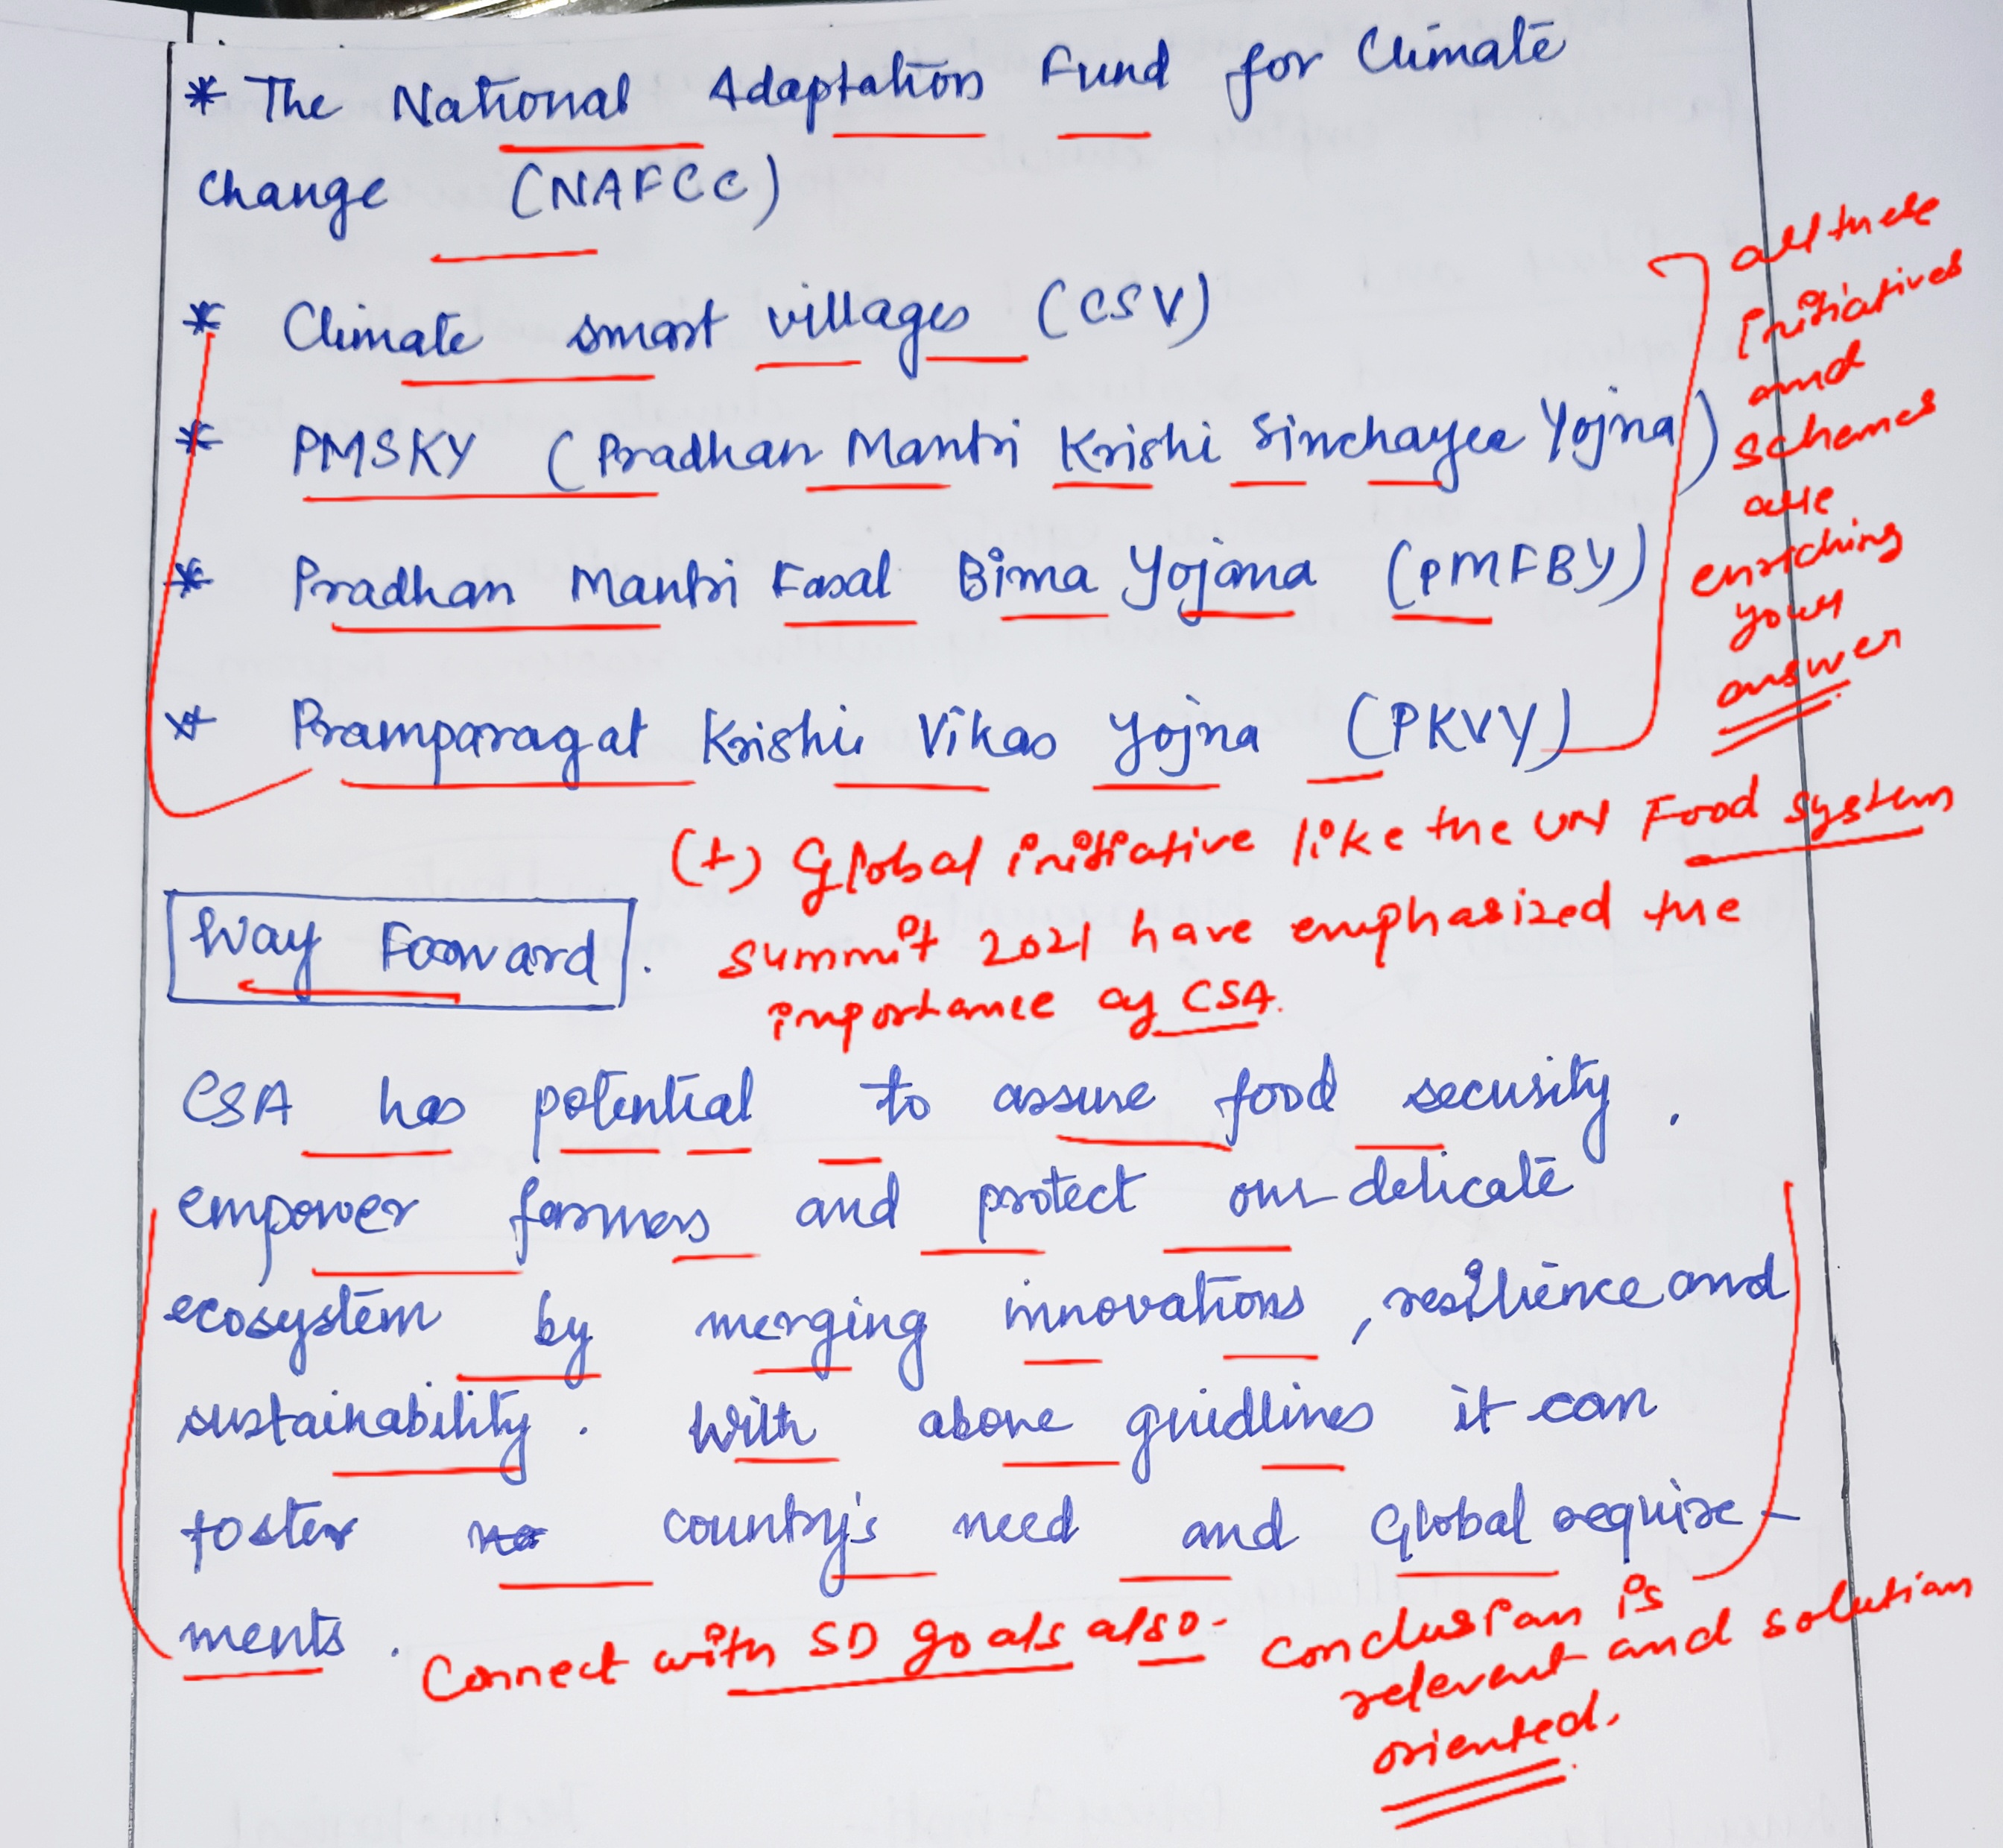 * The National Adaptation Fund for Climate
change (NAFCC)
* Climate smart villages (CSV)
* PMSKY (Pradhan Mantri Krishi Sinchayee Yojna)
* Pradhan Mantri Fasal Bima Yojana (PMFBY)
* Pramparagat Krishi Vikas Yojna (PKVY)
all these
initiatives
and
schemes
are
enriching
your
answer
(+) Global initiative like the UN Food system
summit 2021 have emphasized the
importance of CSA.
Way Forward.
CSA has potential to assure food security.
empower farmers and protect our delicate
ecosystem by merging innovations, resilience and
sustainability. With above guidlines it can
foster country's need and Global require-
ments.
Connect with SD goals also.
Conclusion is
relevant and solution
oriented.